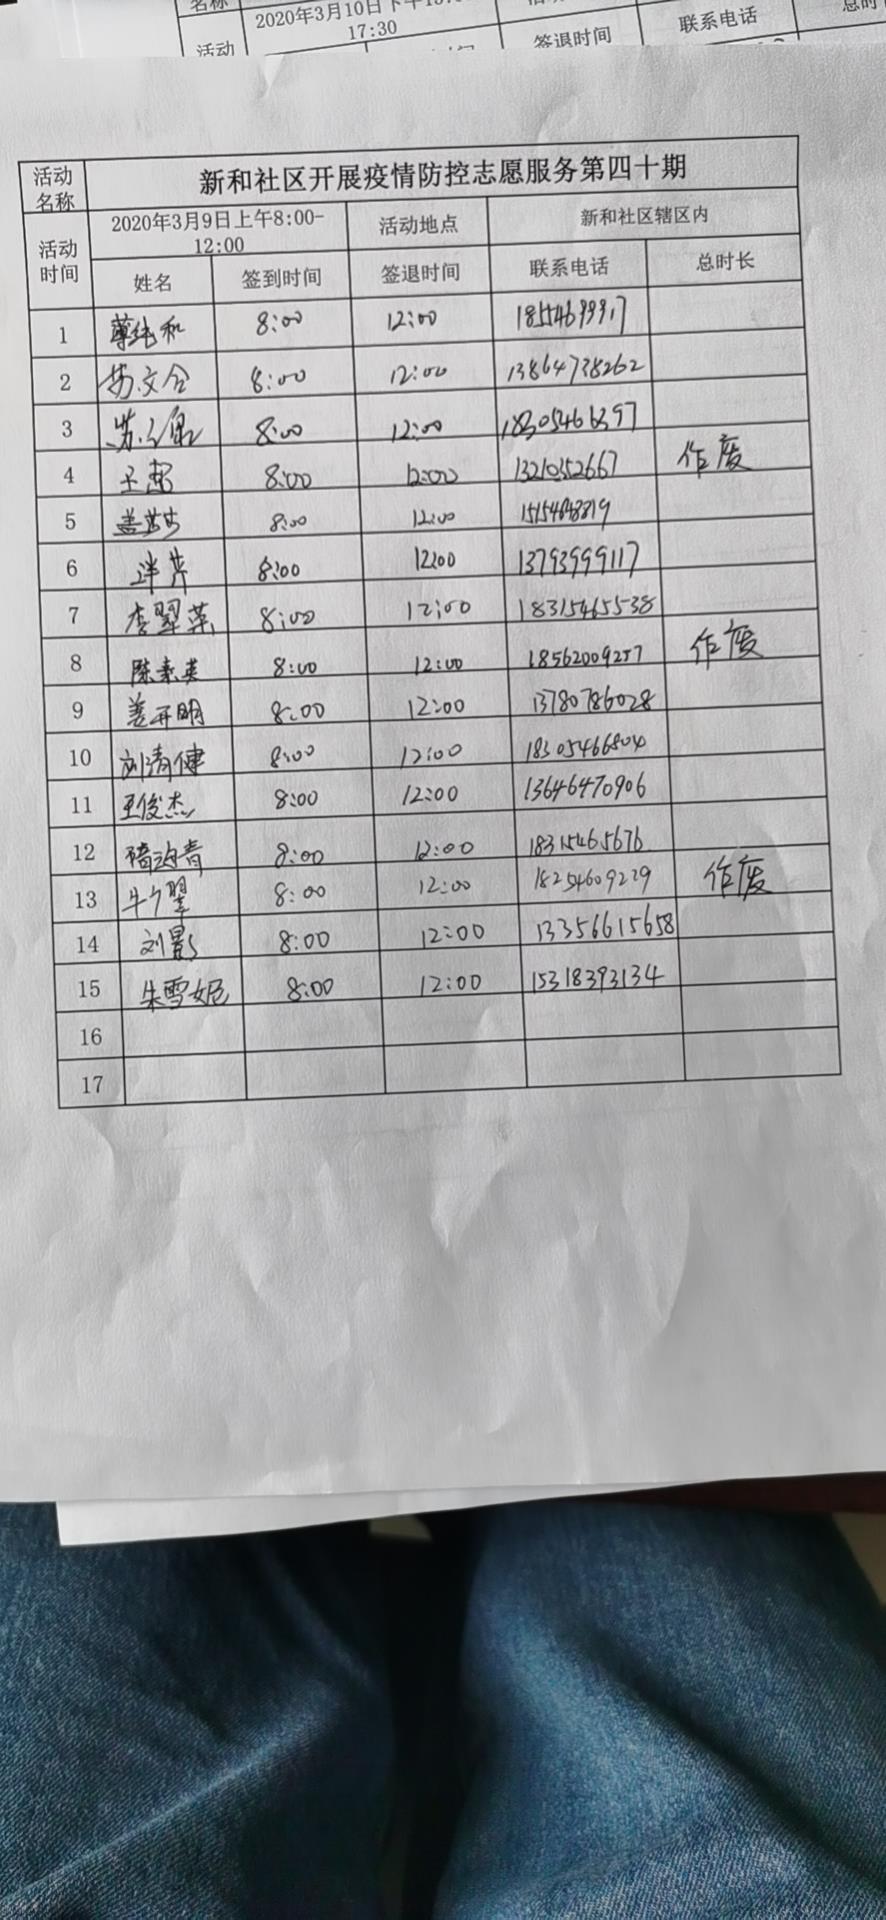 名称 2020年3月10日下午
17:30
活动 签退时间 联系电话 总时
活动名称 新和社区开展疫情防控志愿服务第四十期
活动时间 2020年3月9日上午8:00-12:00 活动地点 新和社区辖区内
姓名 签到时间 签退时间 联系电话 总时长
1 8:00 12:00
2 苏文合 8:00 12:00 13864738262
3 8:00 12:00 18305466397
4 王超 8:00 12:00 13210352667 作废
5 盖芸芸 8:00 12:00
6 8:00 12:00 13793999117
7 李翠英 8:00 12:00 18315465538
8 陈素英 8:00 12:00 18562009257 作废
9 姜开明 8:00 12:00 13780786028
10 刘清健 8:00 12:00 18305466804
11 王俊杰 8:00 12:00 13646470906
12 8:00 12:00 18315465676
13 8:00 12:00 18254609229 作废
14 刘影 8:00 12:00 13356615658
15 朱雪妮 8:00 12:00 15318393134
16
17